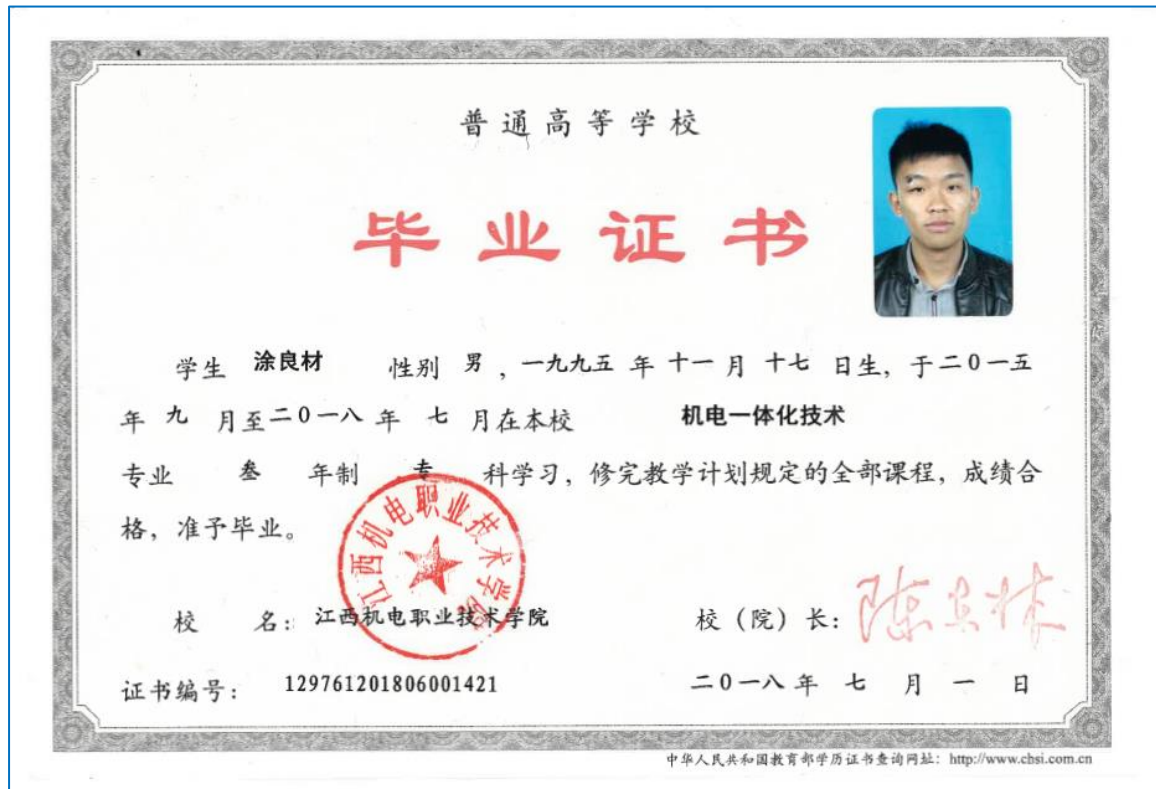 普通高等学校
毕业证书
学生 涂良材 性别 男 ，一九九五 年 十一 月 十七 日生，于二0一五
年 九 月至二0一八 年 七 月在本校 机电一体化技术
专业 叁 年制 专 科学习，修完教学计划规定的全部课程，成绩合
格，准予毕业。
江西机电职业技术学院
校 名：江西机电职业技术学院 校（院）长：
证书编号： 129761201806001421 二0一八 年 七 月 一 日
中华人民共和国教育部学历证书查询网址：http://www.chsi.com.cn